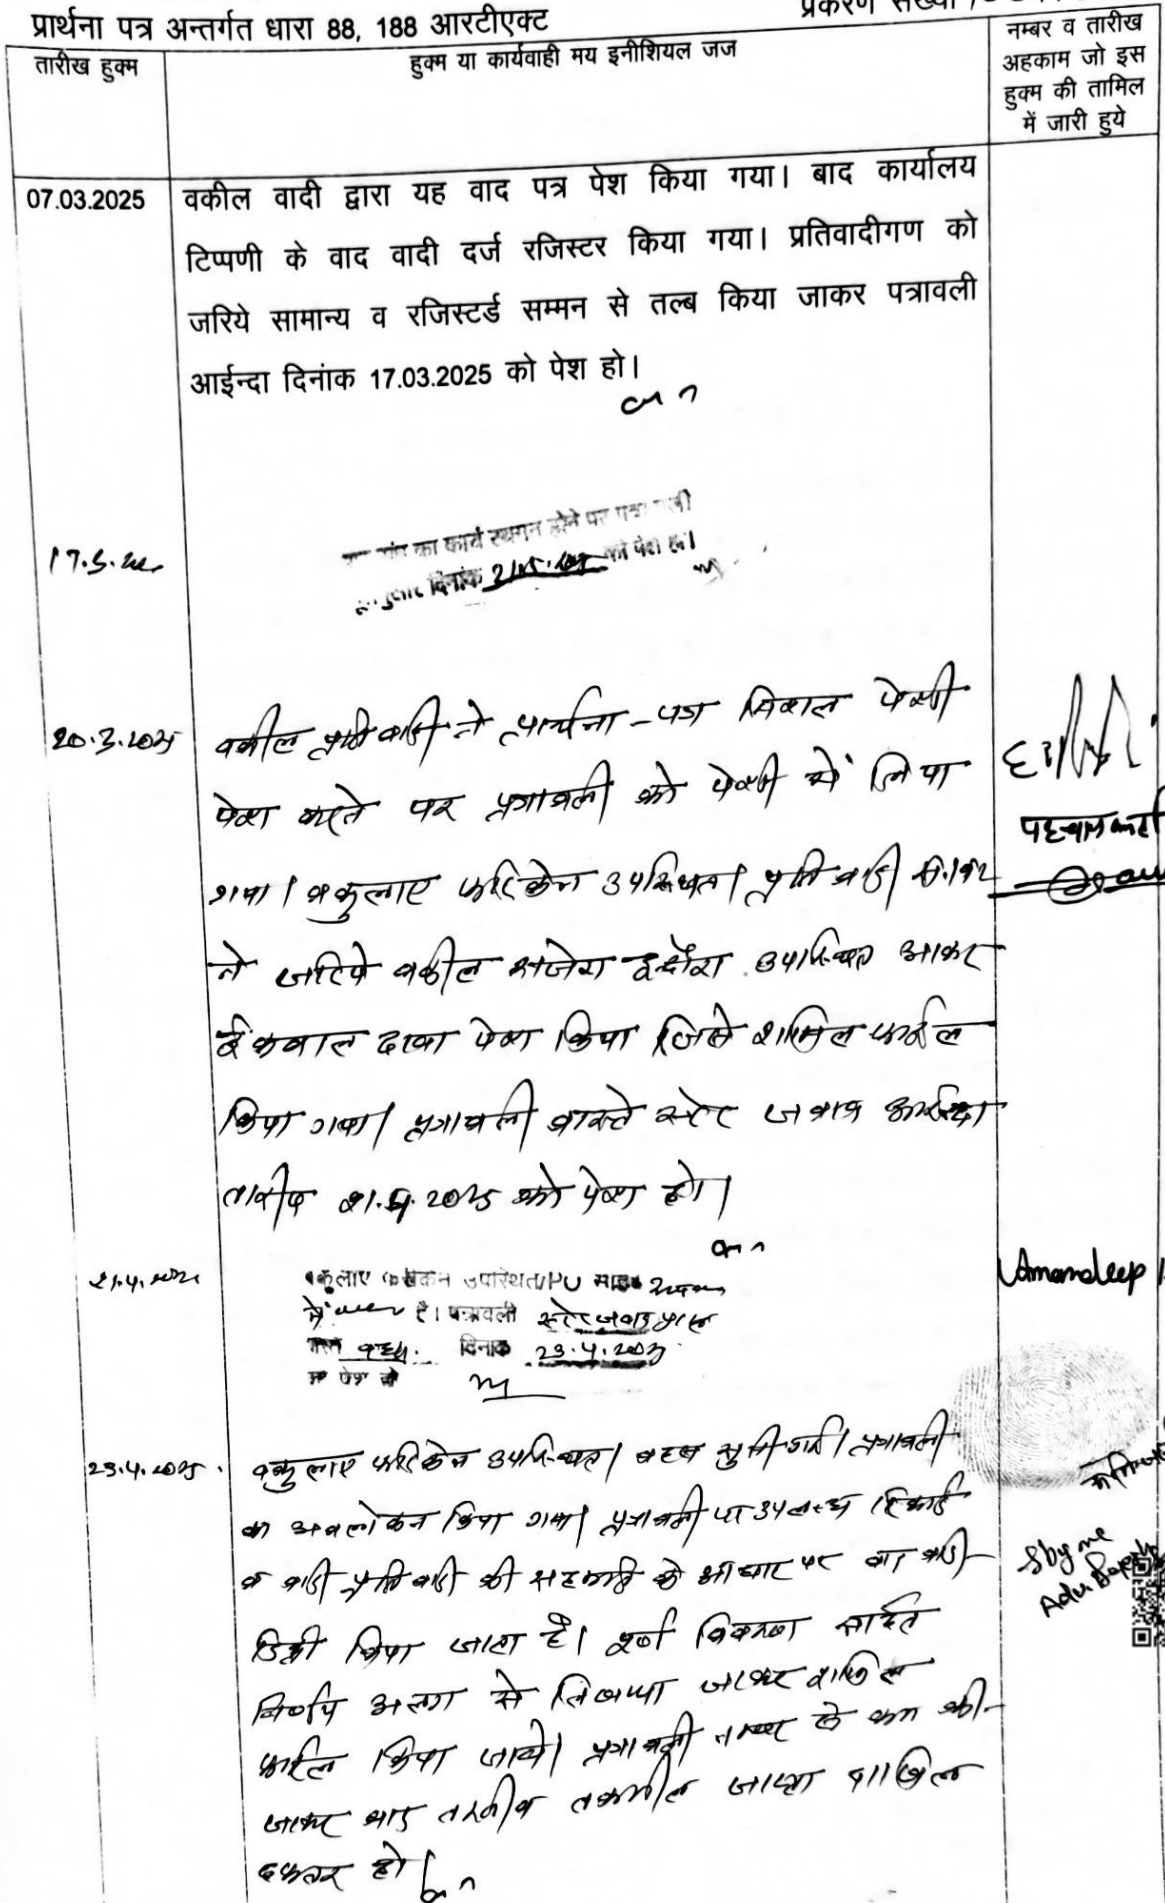 प्रार्थना पत्र अन्तर्गत धारा 88, 188 आरटीएक्ट
प्रकरण संख्या
तारीख हुक्म
हुक्म या कार्यवाही मय इनीशियल जज
नम्बर व तारीख
अहकाम जो इस
हुक्म की तामिल
में जारी हुये
07.03.2025
वकील वादी द्वारा यह वाद पत्र पेश किया गया। बाद कार्यालय
टिप्पणी के वाद वादी दर्ज रजिस्टर किया गया। प्रतिवादीगण को
जरिये सामान्य व रजिस्टर्ड सम्मन से तल्ब किया जाकर पत्रावली
आईन्दा दिनांक 17.03.2025 को पेश हो।
का कार्य स्थगन होने पर
दिनांक को पेश हो।
20.3.2025
वकील प्रतिवादी ने प्रार्थना-पत्र मिशल पेशी
पेश करने पर पत्रावली को पेशी में लिया
गया। वकुलाए फरिकेन उपस्थित। प्रतिवादी
ने जरिये वकील उपस्थित आकर
ईकबाल दावा पेश किया जिसे शामिल फाईल
किया गया। पत्रावली वास्ते स्टेट जवाब आईन्दा
तारीख 21.4.2025 को पेश हो।
21.4.2025
उपस्थित
है। पत्रावली स्टेट जवाब
दिनांक 23.4.2025
पेश हो
Amandeep
23.4.2025
वकुलाए फरिकेन उपस्थित। बहस सुनी गई। पत्रावली
का अवलोकन किया गया। पत्रावली पर उपलब्ध रिकार्ड
व वादी प्रतिवादी की सहमति के आधार पर वाद वादी
डिक्री किया जाता है। पूर्ण विवरण सहित
निर्णय अलग से लिखाया जाकर शामिल
फाईल किया जावे। पत्रावली नम्बर से कम की
जाकर बाद तरतीब तकमील जाप्ता दाखिल
दफ्तर हो।